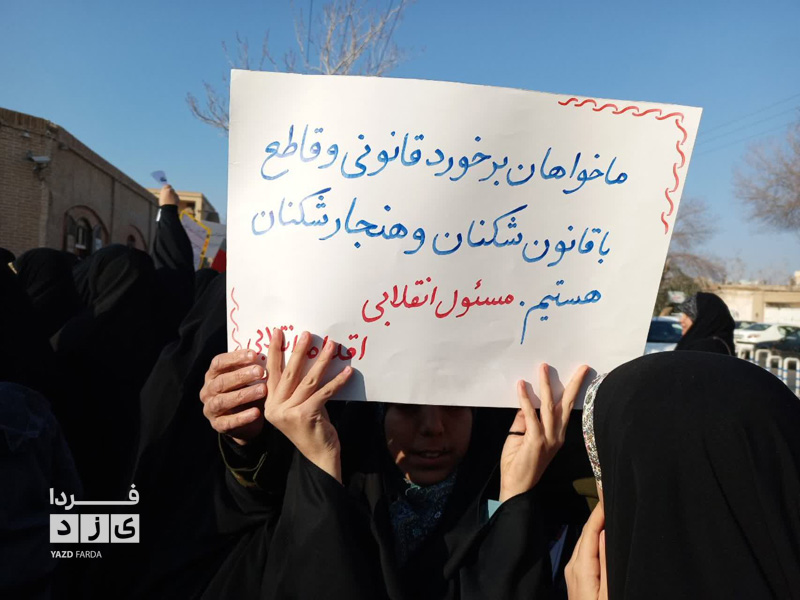 ما خواهان برخورد قانونی و قاطع
با قانون شکنان و هنجارشکنان
هستیم. مسئول انقلابی
اقدام انقلابی
فردا
یزد
YAZD FARDA